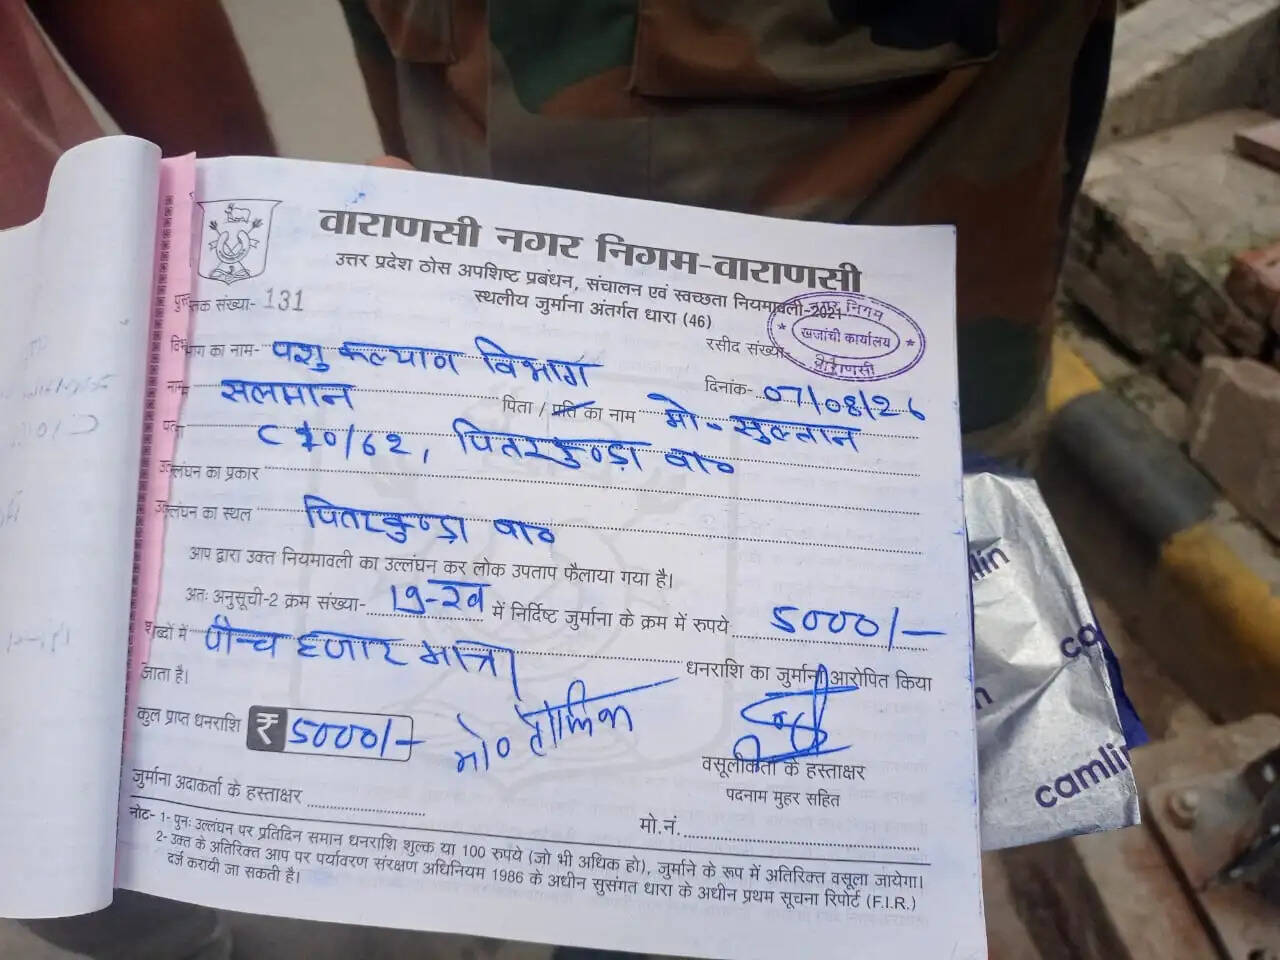 वाराणसी नगर निगम-वाराणसी
उत्तर प्रदेश ठोस अपशिष्ट प्रबंधन, संचालन एवं स्वच्छता नियमावली-2021
स्थलीय जुर्माना अंतर्गत धारा (46)
पुस्तक संख्या- 131
रसीद संख्या-
नगर निगम
खजांची कार्यालय
वाराणसी
विभाग का नाम- पशु कल्याण विभाग दिनांक- 07/08/26
नाम सलमान पिता / पति का नाम मो० सुल्तान
पता C 10/62, पितरकुण्डा वा०
उल्लंघन का प्रकार
उल्लंघन का स्थल पितरकुण्डा वा०
आप द्वारा उक्त नियमावली का उल्लंघन कर लोक उपताप फैलाया गया है।
अतः अनुसूची-2 क्रम संख्या- 19- में निर्दिष्ट जुर्माना के क्रम में रुपये 5000/-
शब्दों में पाँच हजार मात्र। धनराशि का जुर्माना आरोपित किया
जाता है।
कुल प्राप्त धनराशि ₹ 5000/-
मो०
वसूलीकर्ता के हस्ताक्षर
पदनाम मुहर सहित
जुर्माना अदाकर्ता के हस्ताक्षर
मो.नं.
नोट- 1- पुनः उल्लंघन पर प्रतिदिन समान धनराशि शुल्क या 100 रुपये (जो भी अधिक हो), जुर्माने के रूप में अतिरिक्त वसूला जायेगा।
2- उक्त के अतिरिक्त आप पर पर्यावरण संरक्षण अधिनियम 1986 के अधीन सुसंगत धारा के अधीन प्रथम सूचना रिपोर्ट (F.I.R.)
दर्ज करायी जा सकती है।
camlin